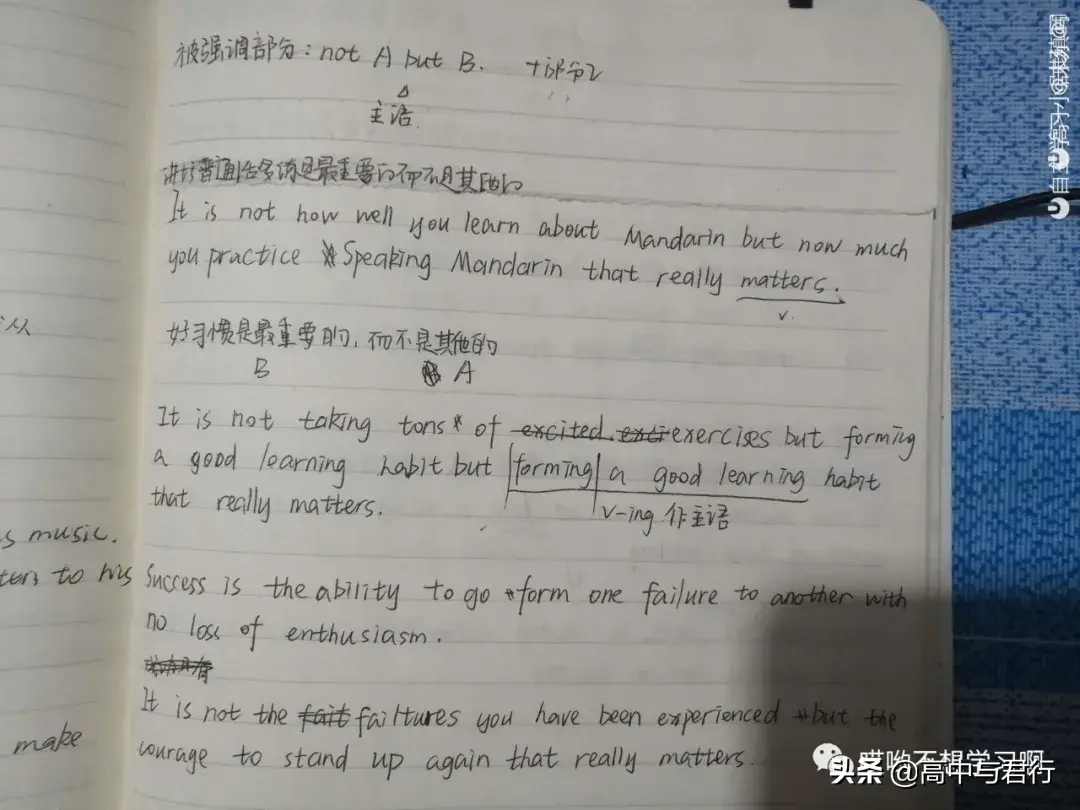 被强调部分：not A but B. +部分2
主语
讲好普通话多练是最重要的而不是其他的
It is not how well you learn about Mandarin but how much
you practice Speaking Mandarin that really matters.
v.
好习惯是最重要的，而不是其他的
B A
It is not taking tons of excited exci exercises but forming
a good learning habit but forming a good learning habit
that really matters.
v-ing 作主语
s music.
ters to his
Success is the ability to go form one failure to another with
no loss of enthusiasm.
It is not the fait failtures you have been experienced but the
make
courage to stand up again that really matters.
哎哟不想学习啊
头条 @高中与君行